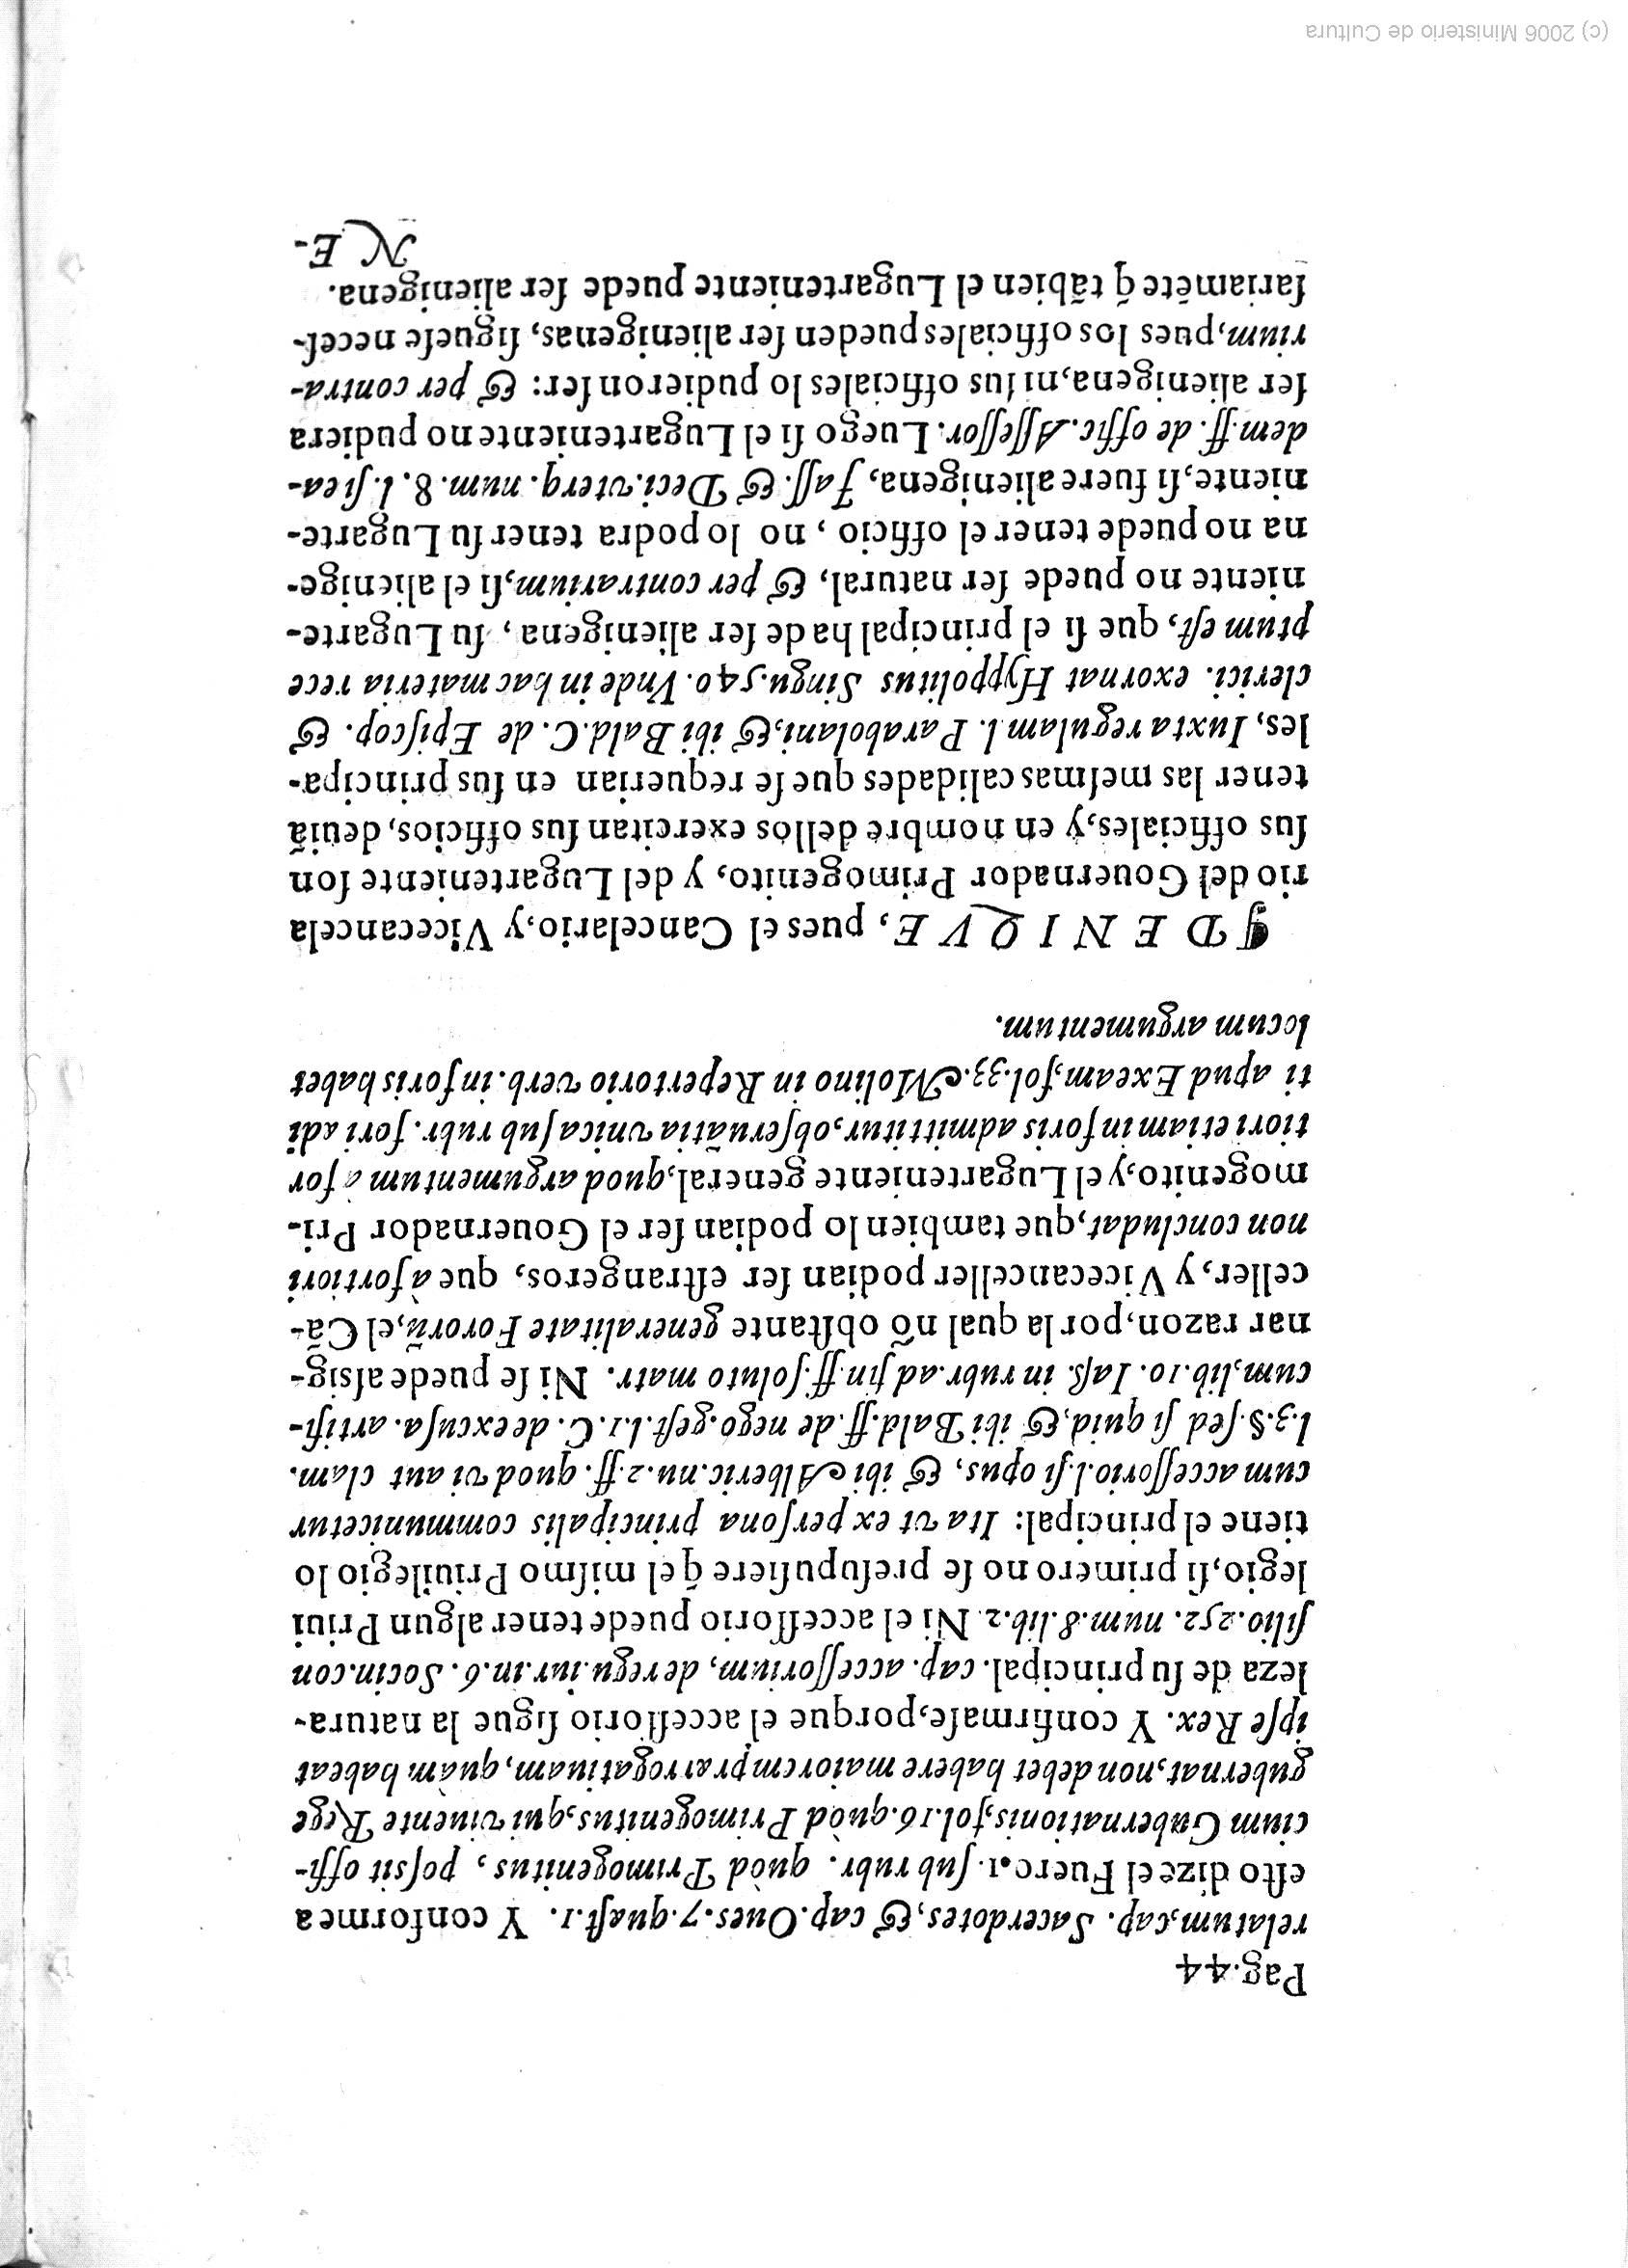 Pag.44
relatum,cap. Sacerdotes,& cap.Oues.7.quæst.1. Y conforme a
esto dize el Fuero.1. sub rubr. quòd Primogenitus, possit offi-
cium Gubernationis,fol.16.quòd Primogenitus,qui viuente Rege
gubernat,non debet habere maiorem prærrogatiuam,quàm habeat
ipse Rex. Y confirmase,porque el accessorio sigue la natura-
leza de su principal. cap. accessorium, de regu.iur.in.6. Socin.con
silio.252. num.8.lib.2. Ni el accessorio puede tener algun Priui
legio,si primero no se presupusiere q̃el mismo Priuilegio lo
tiene el principal: Ita vt ex persona principalis communicetur
cum accessorio.l.si opus, & ibi Alberic.nu.2.ff. quod vi aut clam.
l.3.§.sed si quid,& ibi Bald.ff.de nego.gest.l.1.C. de excusa. artifi-
cum,lib.10. Iaß. in rubr.ad fin.ff.soluto matr. Ni se puede assig-
nar razon,por la qual nõ obstante generalitate Fororũ,el Cã-
celler,y Vicecanceller podian ser estrangeros, que à fortiori
non concludat,que tambien lo podian ser el Gouernador Pri-
mogenito,y el Lugarteniente general,quod argumentum à for
tiori etiam in foris admittitur,obseruãtia vnica sub rubr. fori adi
ti apud Exeam,fol.33.Molino in Repertorio verb.in foris habet
locum argumentum.
¶ DENIQVE, pues el Cancelario,y Vicecancela
rio del Gouernador Primogenito, y del Lugarteniente son
sus officiales,y en nombre dellos exercitan sus officios, deuiã
tener las mesmas calidades que se requerian en sus principa-
les, Iuxta regulam l. Parabolani,& ibi Bald.C. de Episcop. &
clerici. exornat Hyppolitus Singu.540. Vnde in hac materia rece
ptum est, que si el principal ha de ser alienigena, su Lugarte-
niente no puede ser natural, & per contrarium,si el alienige-
na no puede tener el officio, no lo podra tener su Lugarte-
niente,si fuere alienigena, Jass.& Deci.vterq. num.8. l. si ea-
dem.ff. de offic.Assessor. Luego si el Lugarteniente no pudiera
ser alienigena,ni sus officiales lo pudieron ser: & per contra-
rium,pues los officiales pueden ser alienigenas, siguese neces-
sariamẽte q̃ tãbien el Lugarteniente puede ser alienigena.
NE-
(c) 2006 Ministerio de Cultura